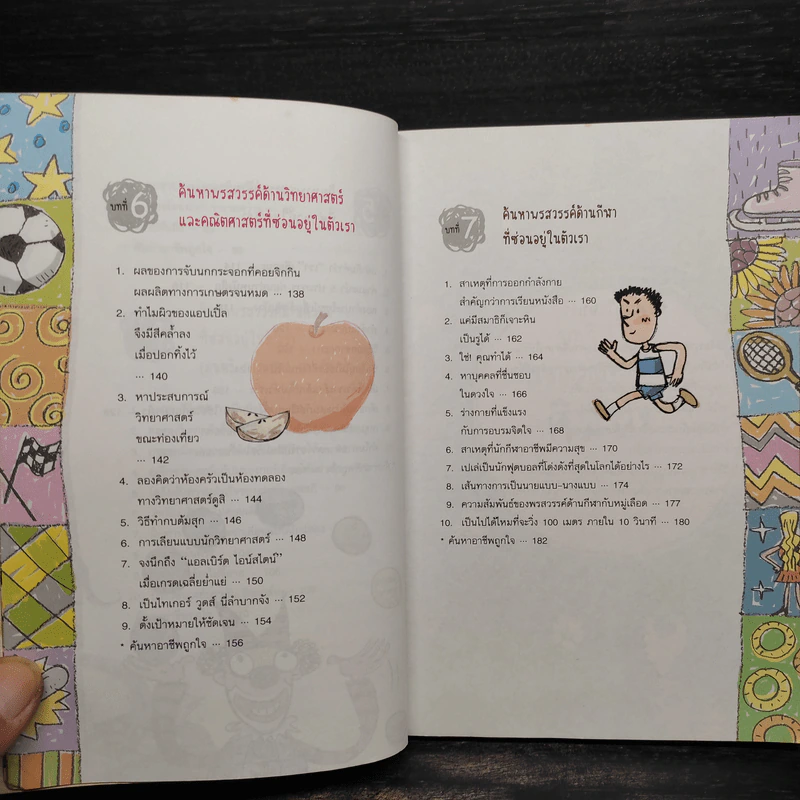 บทที่ 6
ค้นหาพรสวรรค์ด้านวิทยาศาสตร์
และคณิตศาสตร์ที่ซ่อนอยู่ในตัวเรา
1. ผลของการจับนกกระจอกที่คอยจิกกิน
ผลผลิตทางการเกษตรจนหมด ... 138
2. ทำไมผิวของแอปเปิ้ล
จึงมีสีคล้ำลง
เมื่อปอกทิ้งไว้
... 140
3. หาประสบการณ์
วิทยาศาสตร์
ขณะท่องเที่ยว
... 142
4. ลองคิดว่าห้องครัวเป็นห้องทดลอง
ทางวิทยาศาสตร์ดูสิ ... 144
5. วิธีทำกบต้มสุก ... 146
6. การเลียนแบบนักวิทยาศาสตร์ ... 148
7. จงนึกถึง "แอลเบิร์ต ไอน์สไตน์"
เมื่อเกรดเฉลี่ยย่ำแย่ ... 150
8. เป็นไทเกอร์ วูดส์ นี่ลำบากจัง ... 152
9. ตั้งเป้าหมายให้ชัดเจน ... 154
* ค้นหาอาชีพถูกใจ ... 156
บทที่ 7
ค้นหาพรสวรรค์ด้านกีฬา
ที่ซ่อนอยู่ในตัวเรา
1. สาเหตุที่การออกกำลังกาย
สำคัญกว่าการเรียนหนังสือ ... 160
2. แค่มีสมาธิก็เจาะหิน
เป็นรูได้ ... 162
3. ใช่! คุณทำได้ ... 164
4. หาบุคคลที่ชื่นชอบ
ในดวงใจ ... 166
5. ร่างกายที่แข็งแรง
กับการอบรมจิตใจ ... 168
6. สาเหตุที่นักกีฬาอาชีพมีความสุข ... 170
7. เปเล่เป็นนักฟุตบอลที่โด่งดังที่สุดในโลกได้อย่างไร ... 172
8. เส้นทางการเป็นนายแบบ-นางแบบ ... 174
9. ความสัมพันธ์ของพรสวรรค์ด้านกีฬากับหมู่เลือด ... 177
10. เป็นไปได้ไหมที่จะวิ่ง 100 เมตร ภายใน 10 วินาที ... 180
* ค้นหาอาชีพถูกใจ ... 182